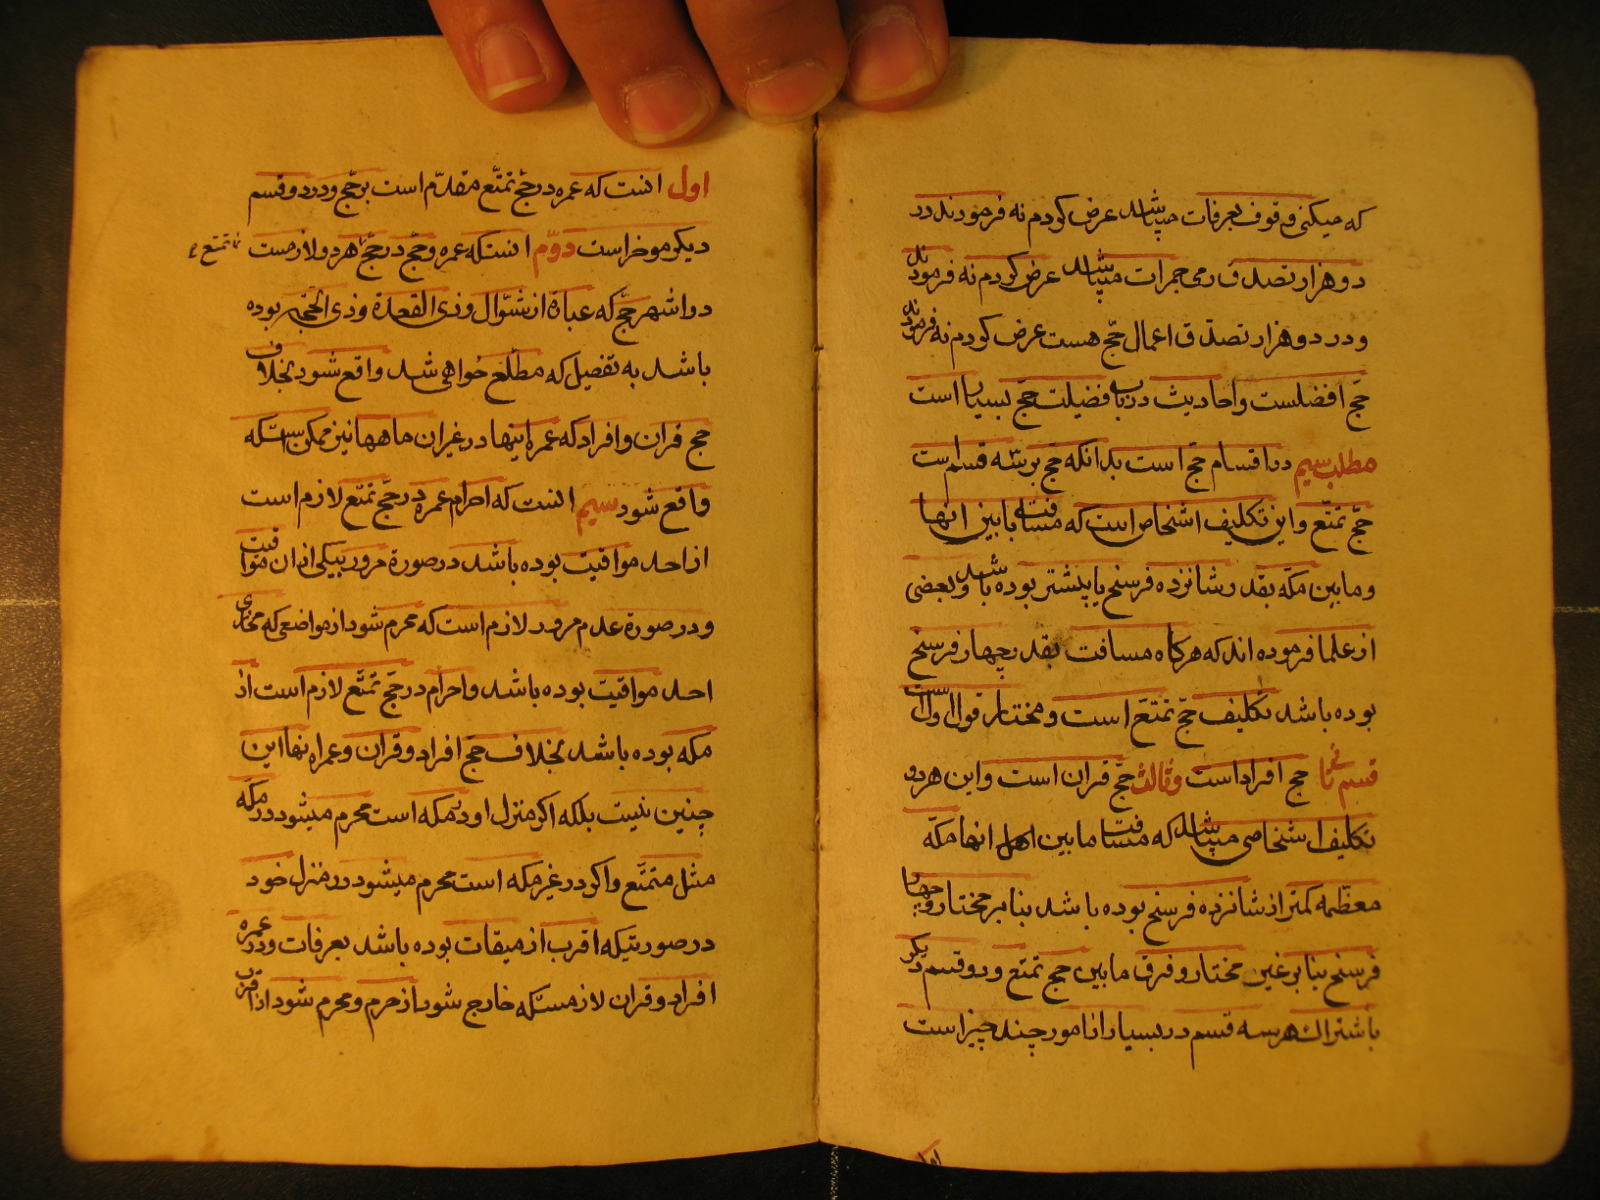 که میکنی وقوف بعرفات میباشد عرض کودم نه فرمودند در
دو هزار تصدق رمی جمرات میباشد عرض کودم نه فرمودند
و در دو هزار تصدّق اعمال حجّ هست عرض کودم نه فرمودند
حجّ افضلست و احادیث در باب فضیلت حجّ بسیار است
مطلب سیم در اقسام حجّ است بدانکه حجّ بر سه قسم است
حجّ تمتّع و این تکلیف اشخاص است که مسافت مابین انها
و مابین مکّه بقدر شانزده فرسنخ یا بیشتر بوده باشد و بعضی
از علما فرموده اند که هرکاه مسافت بقدر چهار فرسنخ
بوده باشد تکلیف حجّ تمتّع است و مختار قول اول است
قسم ثانی حج افراد است و ثالث حجّ قران است و این هر دو
تکلیف اشخاصی میباشد که مسافت مابین اهل انها مکّه
معظّمه کمتر از شانزده فرسنخ بوده باشد بنا بر مختار و چهار
فرسنخ بنا بر غیر مختار و فرق مابین حج تمتع و دو قسم دیکر
باشتراك هر سه قسم در بسیار از امور چند چیز است
اول
اول انست که عمره در حجّ تمتّع مقدّم است بر حجّ و در دو قسم
دیکر موخر است دوّم انست که عمره و حجّ در حجّ تمتع هر دو لازمست
در اشهر حجّ که عبارة از شوّال و ذی القعدة و ذی الحجّه بوده
باشد به تفصیل که مطّلع خواهی شد واقع شود بخلاف
حج قران و افراد که عمره اینها در غیر ان ماهها نیز ممکن است که
واقع شود سیم انست که احرام عمره در حجّ تمتّع لازم است
از احد مواقیت بوده باشد در صورة مرور بیکی از ان مواقیت
و در صورة عدم مرور لازم است که محرم شود از مواضعی که محاذی
احد مواقیت بوده باشد و احرام در حجّ تمتّع لازم است از
مکه بوده باشد بخلاف حجّ افراد و قران و عمره انها این
چنین نیست بلکه اکر منزل او در مکه است محرم میشود در مکه
مثل متمتّع و اکر در غیر مکه است محرم میشود در منزل خود
در صورتیکه اقرب از میقات بوده باشد بعرفات و در عمره
افراد و قران لازمست که خارج شود از حرم و محرم شود از اقرب